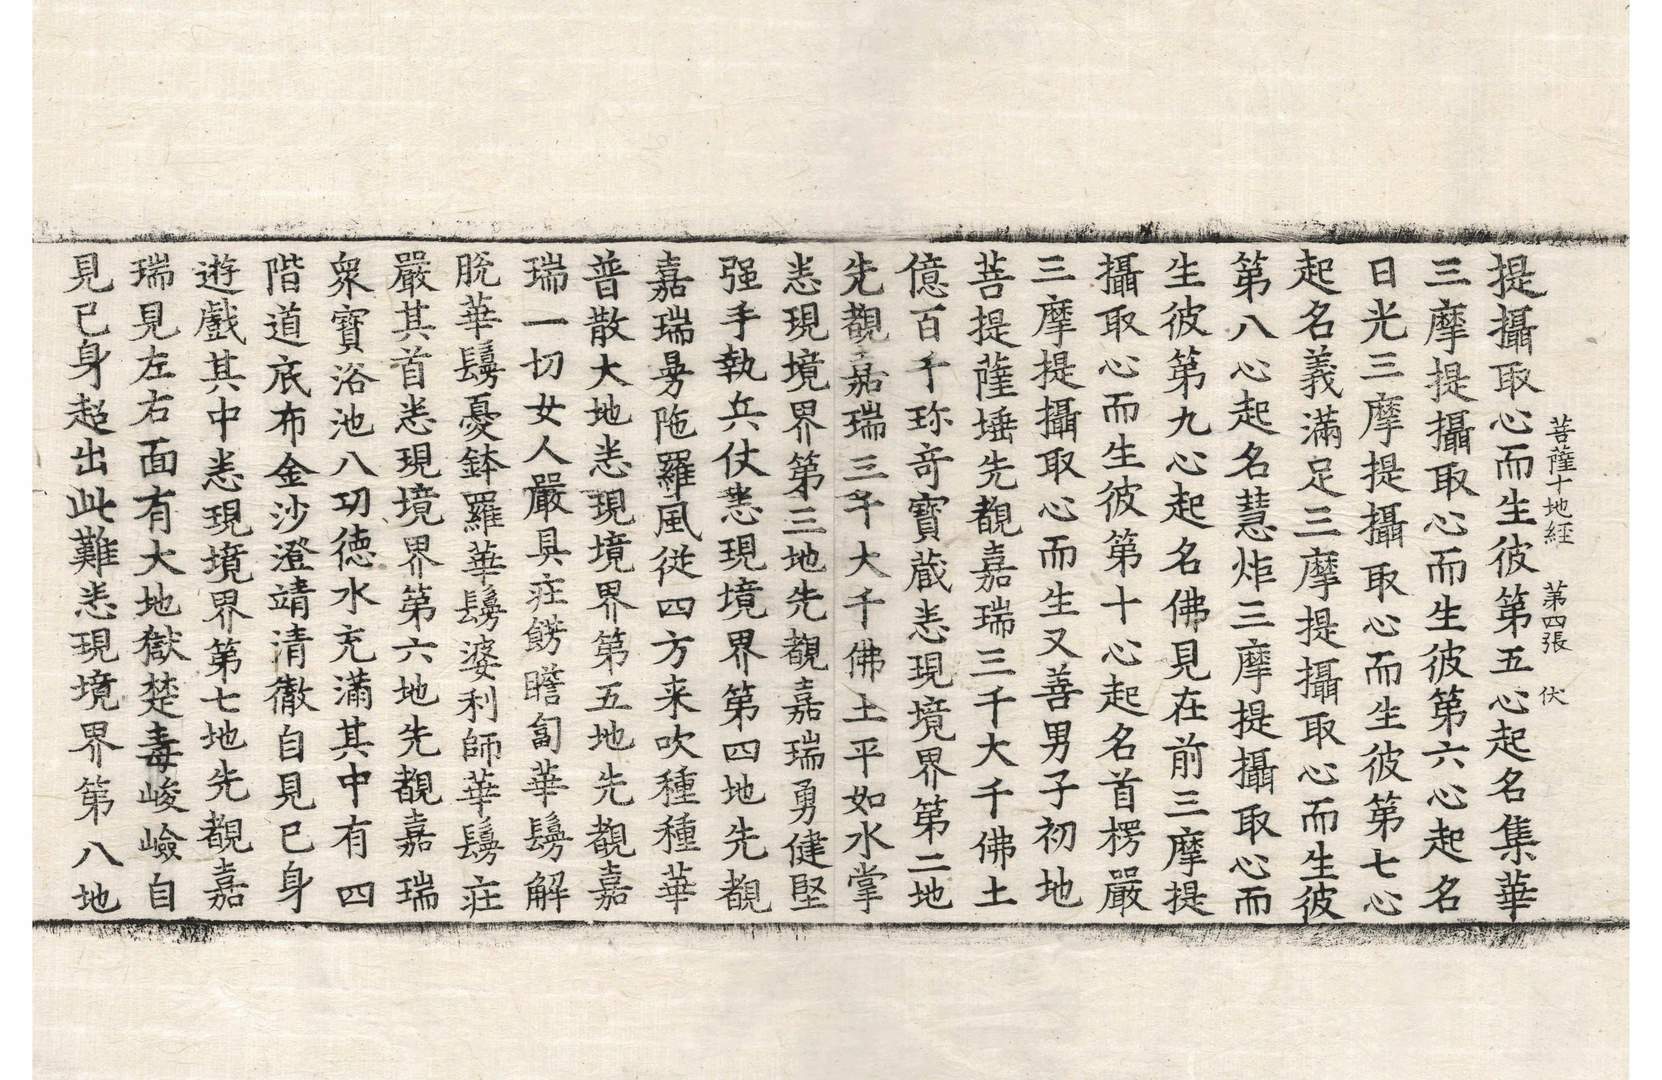 菩薩十地經 第四張 伏
提攝取心而生彼第五心起名集華
三摩提攝取心而生彼第六心起名
日光三摩提攝取心而生彼第七心
起名義滿足三摩提攝取心而生彼
第八心起名慧炸三摩提攝取心而
生彼第九心起名佛見在前三摩提
攝取心而生彼第十心起名首楞嚴
三摩提攝取心而生又善男子初地
菩提薩埵先覩嘉瑞三千大千佛土
億百千珎奇寶藏悉現境界第二地
先覩嘉瑞三千大千佛土平如水掌
悉現境界第三地先覩嘉瑞勇健堅
强手執兵仗悉現境界第四地先覩
嘉瑞曼陁羅風從四方来吹種種華
普散大地悉現境界第五地先覩嘉
瑞一切女人嚴具莊餝瞻匐華鬘解
脫華鬘憂鉢羅華鬘婆利師華鬘莊
嚴其首悉現境界第六地先覩嘉瑞
衆寶浴池八功德水充滿其中有四
階道底布金沙澄靖清徹自見已身
遊戲其中悉現境界第七地先覩嘉
瑞見左右面有大地獄楚毒峻嶮自
見已身超出此難悉現境界第八地